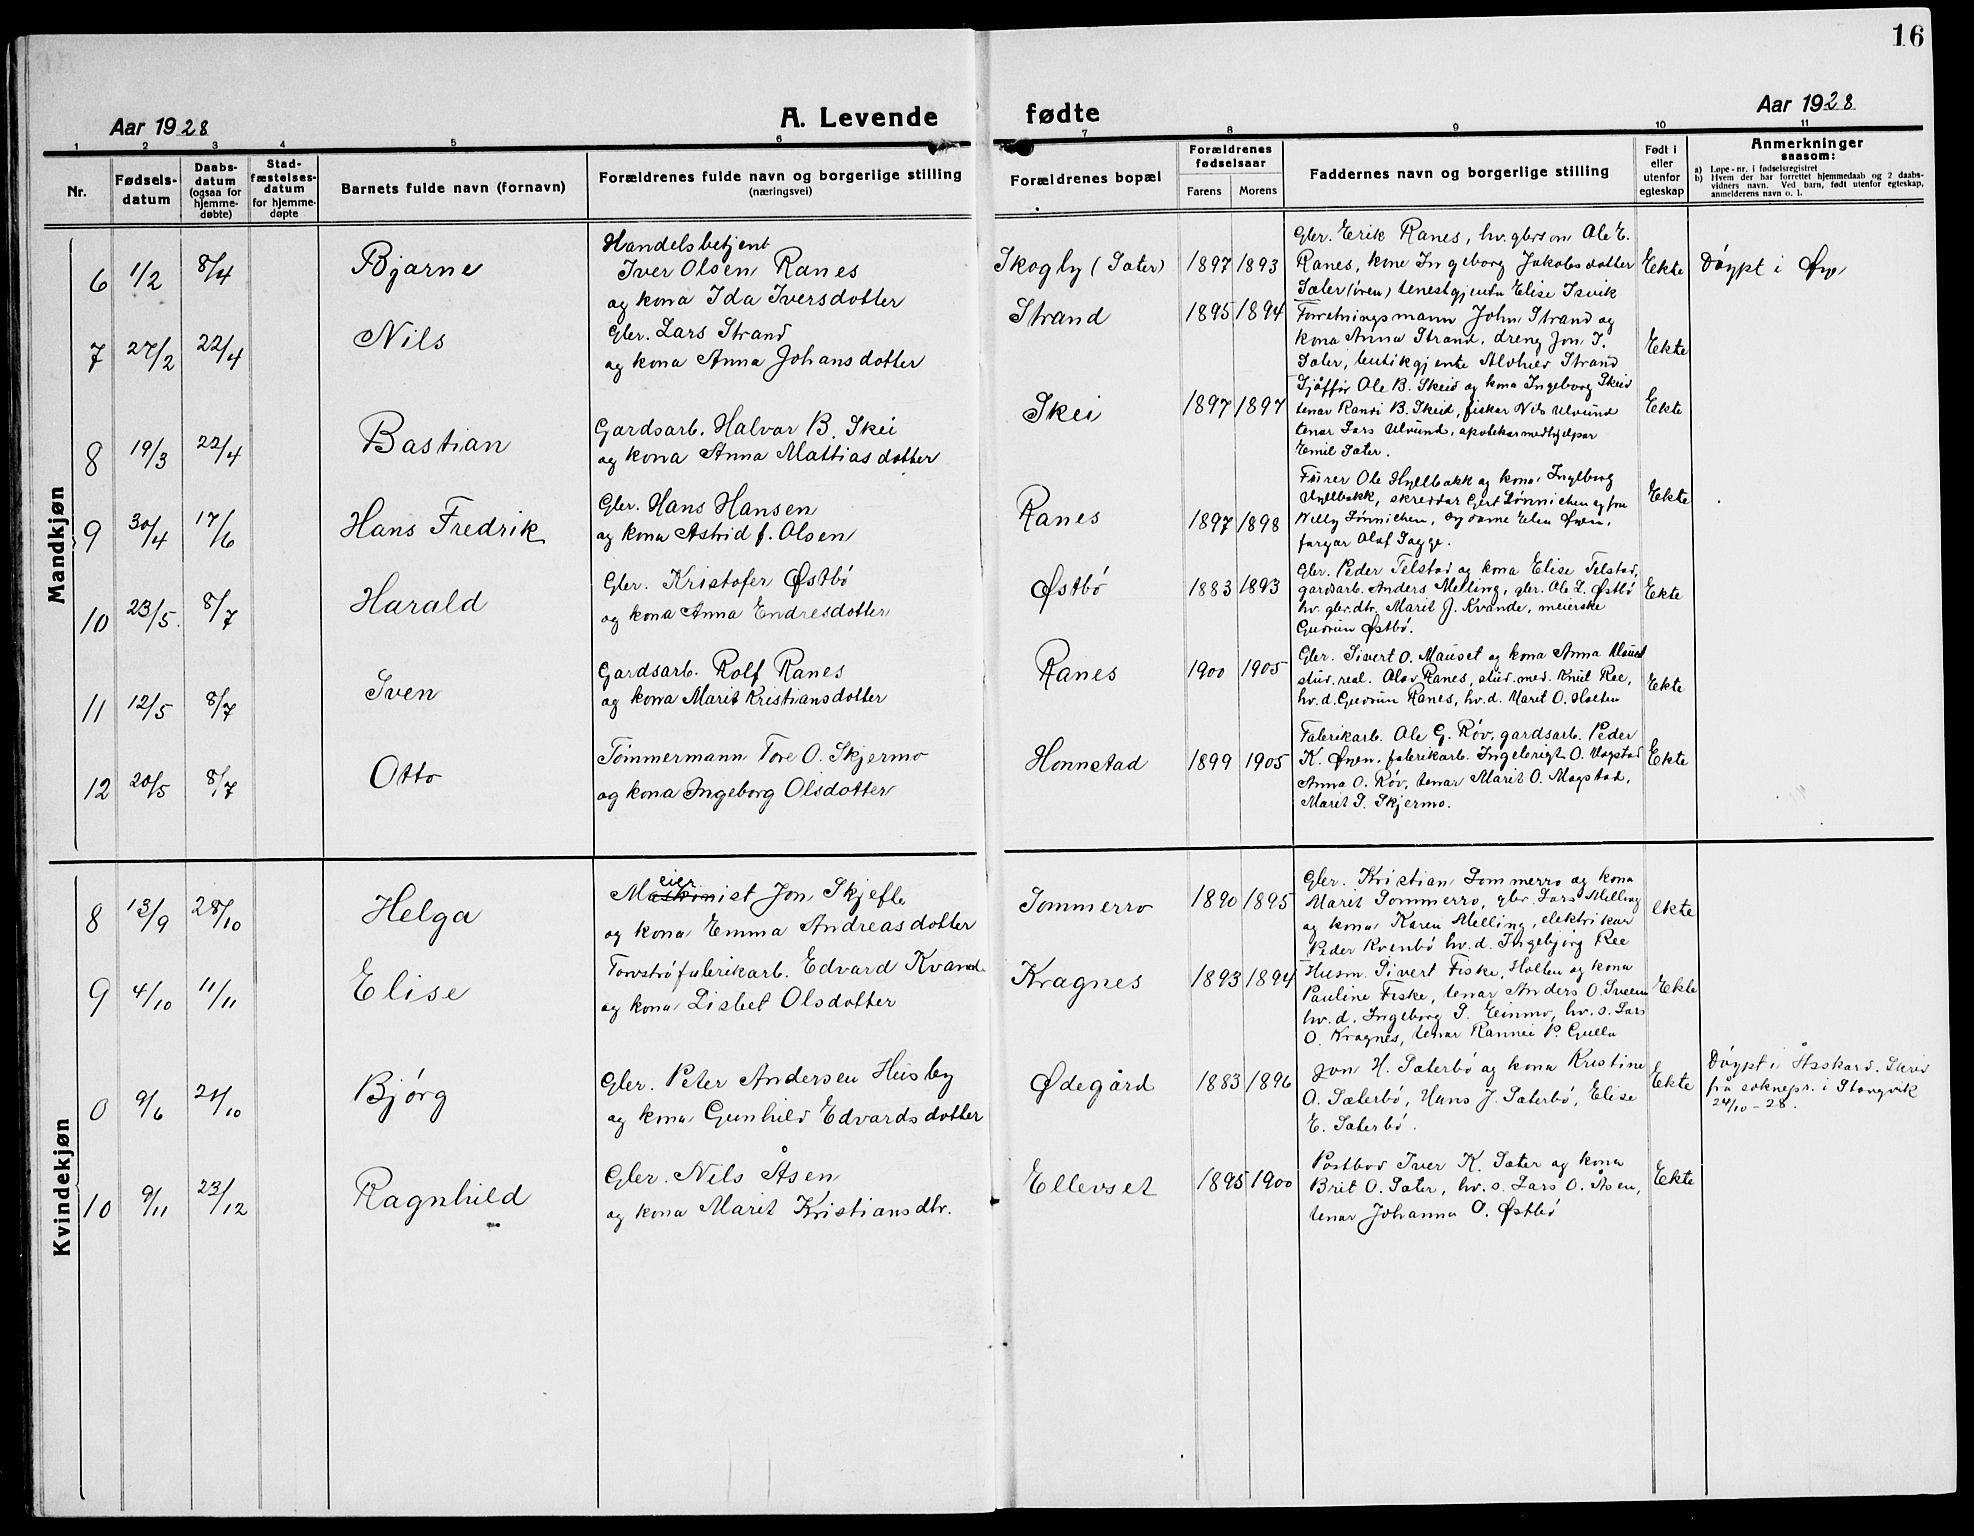 16
Aar 1928
A. Levende
fødte
Aar 1928
1 2 3 4 5 6 7 8 9 10 11
Nr.
Fødsels-
datum
Daabs-
datum
(ogsaa for
hjemme-
døbte)
Stad-
fæstelses-
datum
for hjemme-
døpte
Barnets fulde navn (fornavn)
Forældrenes fulde navn og borgerlige stilling
(næringsvei)
Forældrenes bopæl
Forældrenes
fødselsaar
Farens Morens
Faddernes navn og borgerlige stilling
Født i
eller
utenfor
egteskap
Anmerkninger
saasom:
a) Løpe-nr. i fødselsregistret
b) Hvem der har forrettet hjemmedaab og 2 daabs-
vidners navn. Ved barn, født utenfor egteskap,
anmelderens navn o. l.
Mandkjøn
6 1/2 8/4 Bjarne
Handelsbetjent
Iver Olsen Ranes
og kona Ida Iversdotter
Skogly (Sæter) 1897 1893
Gbr. Erik Ranes, hv. gbrson Ole E.
Ranes, kone Ingeborg Jakobsdotter
Sæter (øren) tenestgjenta Elise Isvik
Ekte Døypt i Øye
7 27/2 22/4 Nils
Gbr. Lars Strand
og kona Anna Johansdotter
Strand 1895 1894
Forretningsmann John Strand og
kona Anna Strand, dreng Jon I.
Sæter, butikgjente Alvhild Strand
Ekte
8 19/3 22/4 Bastian
Gardsarb. Halvar B. Skei
og kona Anna Mattiasdotter
Skei 1897 1897
Sjåffør Ole B. Skeid og kona Ingeborg Skeid
tenar Randi B. Skeid, fiskar Nils Ulvund
tenar Lars Ulvund, apotekarmedhjelpar
Emil Sæter.
Ekte
9 30/4 17/6 Hans Fredrik
Gbr. Hans Hansen
og kona Astrid f. Olsen
Ranes 1897 1898
Furer Ole Hyllbakk og kona Ingeborg
Hyllbakk, skreddar Gert Lønnichen og fru
Nelly Lønnichen, sydame Elen Øyen,
fargar Olaf Sagge.
Ekte
10 23/5 8/7 Harald
Gbr. Kristofer Østbø
og kona Anna Endresdotter
Østbø 1883 1893
Gbr. Peder Telstad og kona Elise Telstad,
gardsarb. Anders Melling, gbr. Ole L. Østbø
hv. gbr.dtr. Marit J. Kvande, meierske
Gudrun Østbø.
Ekte
11 12/5 8/7 Sven
Gardsarb. Rolf Ranes
og kona Marit Kristiansdotter
Ranes 1900 1905
Gbr. Sivert O. Mauset og kona Anna Mauset
stud. real. Olav Ranes, stud. med. Knut Ree,
hv. d. Gudrun Ranes, hv. d. Marit O. Holten
Ekte
12 20/5 8/7 Otto
Tømmermann Tore O. Skjermo
og kona Ingeborg Olsdotter
Honnstad 1899 1905
Fabrikarb. Ole G. Røv, gardsarb. Peder
K. Øyen, fabrikarb. Ingebrigt O. Magstad
Anna O. Røv, tenar Marit O. Magstad,
Marit S. Skjermo.
Ekte
Kvindekjøn
8 13/9 28/10 Helga
eier
Maskinist Jon Skjefle
og kona Emma Andreasdotter
Sommerro 1890 1895
Gbr. Kristian Sommerro og kona
Marit Sommerro, gbr. Lars Melling
og kona Karen Melling, elektrikar
Peder Kvenbø hv. d. Ingebjørg Ree
ekte
9 4/10 11/11 Elise
Torvstrøfabrikarb. Edvard Kvande
og kona Lisbet Olsdotter
Kragnes 1893 1894
Husm. Sivert Fiske, Holten og kona
Pauline Fiske, tenar Anders O. Sveen
hv. d. Ingeborg S. Einmo, hv. s. Lars
O. Kragnes, tenar Rannei P. Gulla
Ekte
0 9/6 21/10 Bjørg
Gbr. Peter Andersen Husby
og kona Gunhild Edvardsdotter
Ødegård 1883 1896
Jon H. Sæterbø og kona Kristine
O. Sæterbø, Hans J. Sæterbø, Elise
E. Sæterbø.
Ekte
Døypt i Åsskard.
frå soknepr. i Stangvik
24/10-28.
10 9/11 23/12 Ragnhild
Gbr. Nils Åsen
og kona Marit Kristiansdtr.
Ellevset 1895 1900
Postbod Iver K. Sæter og kona
Brit O. Sæter, hv. s. Lars O. Åsen,
tenar Johanna O. Østbø
Ekte